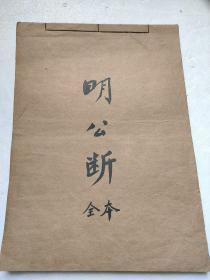 明公断
全本